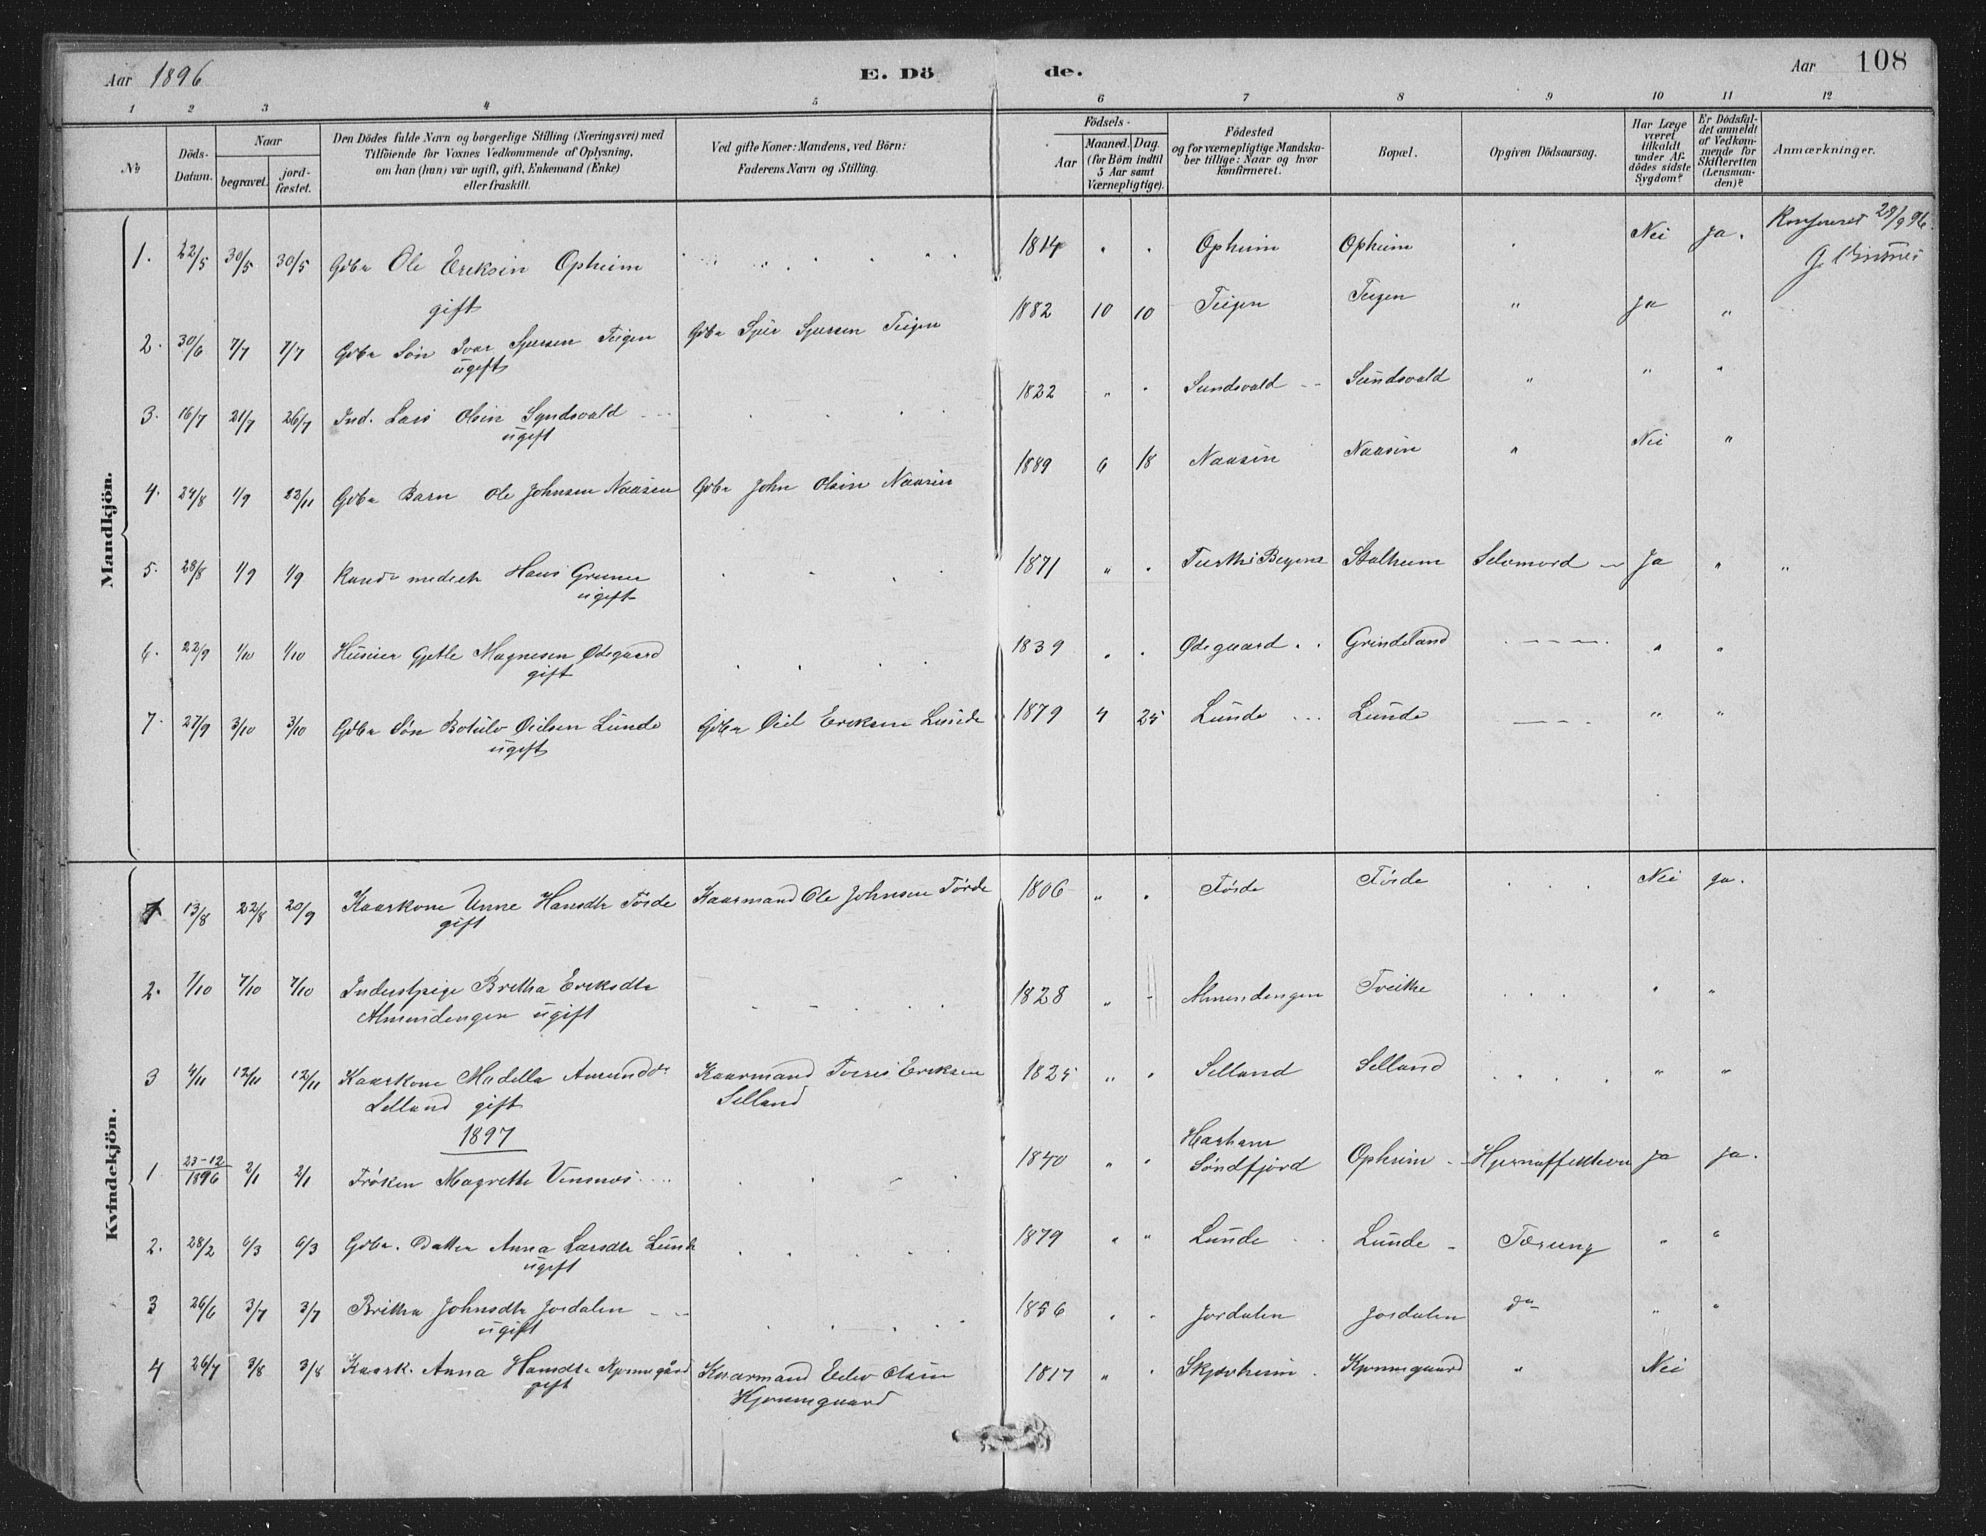 Aar 1896 E. Dö de. Aar 108
1 2 3 4 5 6 7 8 9 10 11 12
№ Döds-Datum. Naar begravet. jord-fæstet. Den Dödes fulde Navn og borgerlige Stilling (Næringsvei) med Tilföiende for Voxnes Vedkommende af Oplysning, om han (hun) var ugift, gift, Enkemand (Enke) eller fraskilt. Ved gifte Koner: Mandens, ved Börn: Faderens Navn og Stilling. Födsels- Aar Maaned. Dag. (for Börn indtil 5 Aar samt Værnepligtige). Födested og for værnepligtige Mandskaber tillige: Naar og hvor konfirmeret. Bopæl. Opgiven Dödsaarsag. Har Læge været tilkaldt under Afdödes sidste Sygdom? Er Dödsfaldet anmeldt af Vedkommende for Skifteretten (Lensmanden)? Anmærkninger.
Mandkjön.
1. 22/5 30/5 30/5 Gdbr Ole Eriksen Opheim 1814 " " Opheim Opheim Nei Ja. 28/9 96.
gift
2. 30/6 7/7 7/7 Gdbr Søn Ivar Sjursen Teigen Gdbr Sjur Sjursen Teigen 1882 10 10 Teigen Teigen " Ja "
ugift
3. 16/7 21/7 26/7 Ind. Lars Olsen Syndsvald 1822 " " Sundsvald Sundsvald " " "
ugift
4. 24/8 1/9 22/11 Gdbr Barn Ole Johnsen Naasen Gdbr John Olsen Naasen 1889 6 18 Naasen Naasen " Nei "
5. 28/8 1/9 1/9 Kand. medich Hans Gruner 1871 " " Stalheim Selvmord Ja " "
ugift
6. 22/9 1/10 1/10 Gjetle Magnesen Ødegaard 1839 " " Ødegaard Grindeland " "
gift
7. 27/9 3/10 3/10 Gdbr Søn Botulv Eriksen Lunde 1879 4 25 Lunde Lunde " "
ugift
Kvindekjön.
1 13/8 22/8 20/9 Kaarkone Anne HansdtrFørde Kaarmand Ole Johnsen Førde 1806 " " Førde Førde Nei Ja.
gift
2. 1/10 7/10 7/10 Inderstpige Britha Eriksdtr 1828 " " Almendengen Tveithe " "
Almendengen ugift
3 4/11 12/11 12/11 Kaarkone Madella Amundsdr Kaarmand Eriksen 1825 " " Selland Selland " "
Selland gift Selland
1897
1. 23-12/1896 2/1 2/1 Frøken Magrethe Vinsnes 1840 " " Søndfjord Opheim Ja Ja.
2. 28/2 6/3 6/3 Gdbr. Datter Anna Larsdtr Lunde 1879 " " Lunde Lunde Tæring " "
ugift
3 26/6 3/7 3/7 Britha Johnsdtr Jordalen 1856 " " Jordalen Jordalen do " "
ugift
4 26/7 3/8 3/8 Kaark. Anna Hansdtr Kaarmand Olsen 1817 " " Skjerheim " Nei
gift